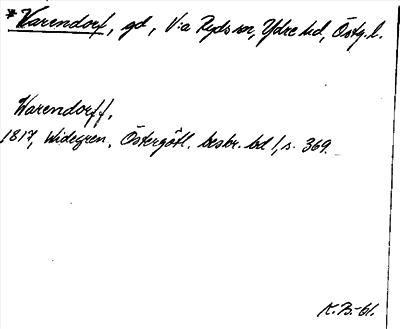 *Varendorf, gd, V:a Ryds sn, Ydre hd, Östg. l.
Warendorff,
1817, Widegren, Östergötl. beskr. bd 1, s. 369.
K.B.-61.